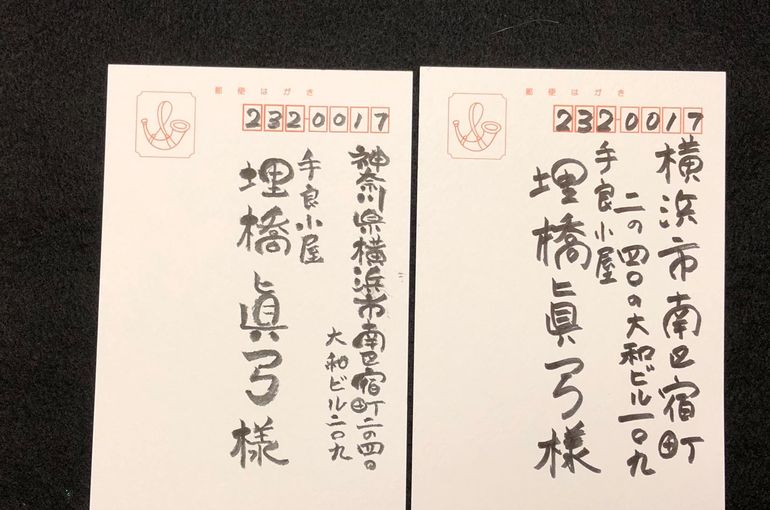 郵便はがき
232-0017
神奈川県横浜市南区宿町二の四〇
大和ビル二〇九
手良小屋
埋橋眞弓様
郵便はがき
232-0017
横浜市南区宿町
二の四〇の大和ビル一〇九
手良小屋
埋橋眞弓様